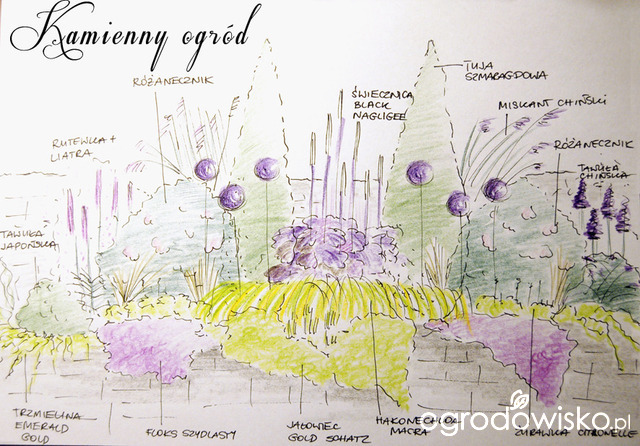 Kamienny ogród
RÓŻANECZNIK
TUJA
SZMARAGDOWA
ŚWIECZNICA
BLACK
NAGLIGEE
MISKANT CHIŃSKI
RUTEWKA +
LIATRA
RÓŻANECZNIK
TAWUŁKA
CHIŃSKA
TAWUŁKA
JAPOŃSKA
TRZMIELINA
EMERALD
GOLD
FLOKS SZYDLASTY
JAŁOWIEC
GOLD SCHATZ
HAKONECHLOA
MACRA
ŻURAWKA CITRONELLE
ogrodowisko.pl